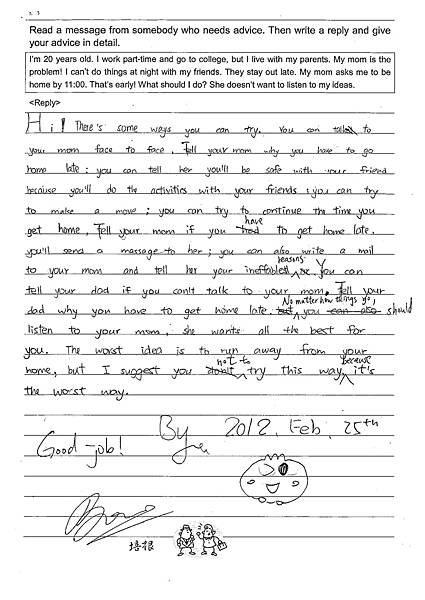 Read a message from somebody who needs advice. Then write a reply and give
your advice in detail.
I'm 20 years old. I work part-time and go to college, but I live with my parents. My mom is the
problem! I can't do things at night with my friends. They stay out late. My mom asks me to be
home by 11:00. That's early! What should I do? She doesn't want to listen to my ideas.
<Reply>
Hi! There's some ways you can try. You can to
your mom face to face. Tell your mom why you have to go
home late; you can tell her you'll be safe with your friend
because you'll do the activities with your friends; you can try
to make a move; you can try to continue the time you
have
get home, Tell your mom if you had to get home late.
you'll send a massage to her; you can also write a mail
reasons.
to your mom and tell her your You can
tell your dad if you can't talk to your mom. Tell your
No matter how things go,
dad why you have to get home late. but you can also should
listen to your mom, she wants all the best for
you. The worst idea is to run away from your
not to because
home, but I suggest you don't try this way, it's
the worst way.
Good job! By 2012. Feb. 25th
培根